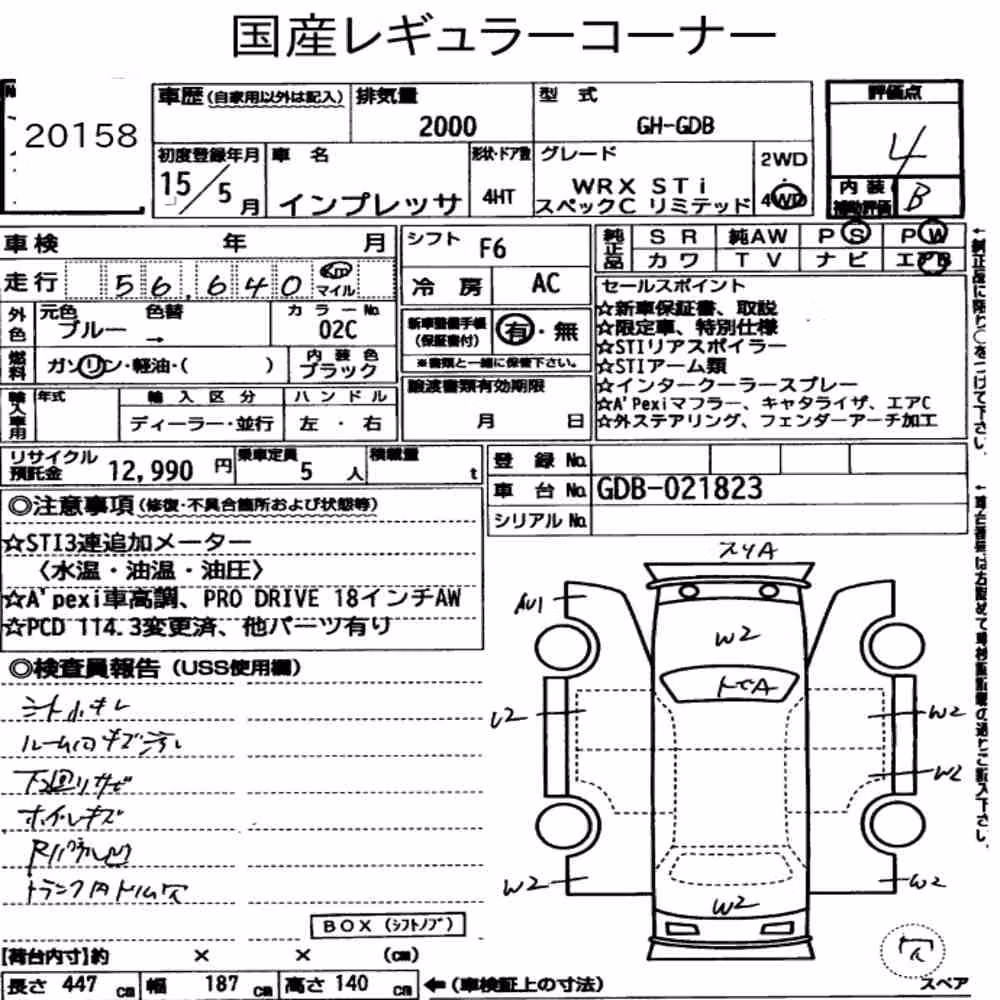 国産レギュラーコーナー
No.
20158
車歴(自家用以外は記入)
排気量
2000
型 式
GH-GDB
評価点
4
内装
補助評価
B
初度登録年月
15/5月
車 名
インプレッサ
形状・ドア数
4HT
グレード
WRX STi
スペックC リミテッド
2WD
・
4WD
車検 年 月
走行 56,640 Km
マイル
シフト F6
冷 房 AC
純正品
SR 純AW PS PW
カワ TV ナビ エアB
外色
元色 色替
ブルー →
カラーNo.
02C
燃料
ガソリン・軽油・( )
内装色
ブラック
新車整備手帳
(保証書付)
有・無
※書類と一緒に保管下さい。
譲渡書類有効期限
月 日
輸入車用
年式
輸入区分
ディーラー・並行
ハンドル
左・右
セールスポイント
☆新車保証書、取説
☆限定車、特別仕様
☆STIリアスポイラー
☆STIアーム類
☆インタークーラースプレー
☆A'Pexiマフラー、キャタライザ、エアC
☆外ステアリング、フェンダーアーチ加工
リサイクル
預託金
12,990 円
乗車定員
5 人
積載量
t
登 録 No.
車 台 No. GDB-021823
シリアル No.
◎注意事項(修復・不具合箇所および状態等)
☆STI3連追加メーター
〈水温・油温・油圧〉
☆A'pexi車高調、PRO DRIVE 18インチAW
☆PCD 114.3変更済、他パーツ有り
◎検査員報告(USS使用欄)
ルーム内キズ汚レ
下廻リサビ
ホイルキズ
トランク内トリム穴
BOX(シフトノブ)
【荷台内寸】約 × × (cm)
長さ 447 cm 幅 187 cm 高さ 140 cm ←(車検証上の寸法)
スリA
AU1
W2
トビA
U2
W2
W2
W2
W2
W2
穴
スペア
←純正品に限り〇をつけて下さい。